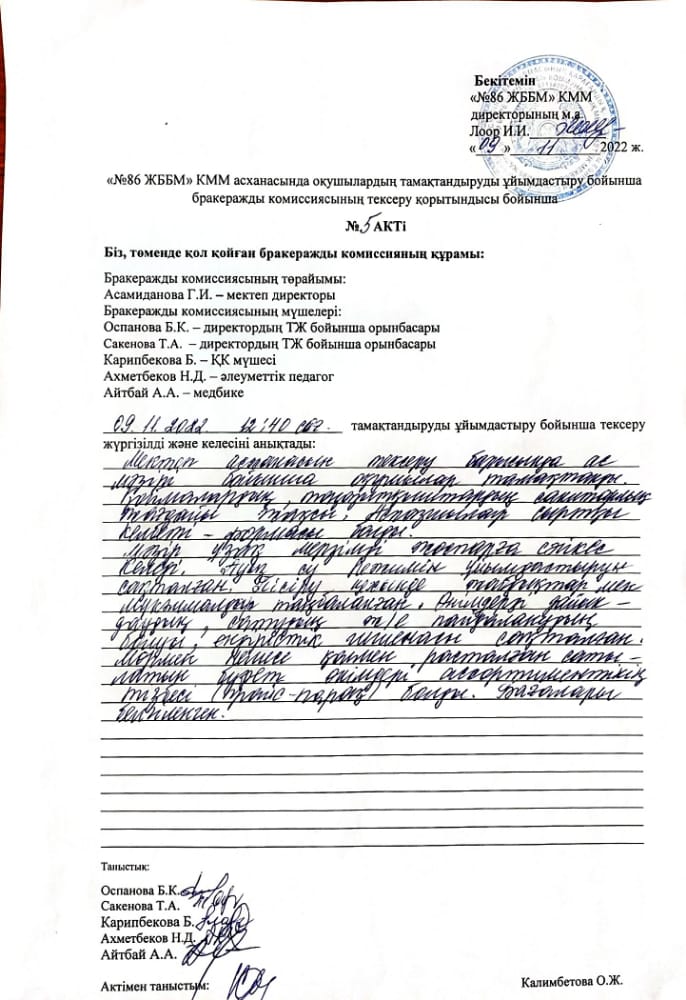 Бекітемін
«№86 ЖББМ» КММ
директорының м.а
Лоор И.И.
«09» 11 2022 ж.
«№86 ЖББМ» КММ асханасында оқушылардың тамақтандыруды ұйымдастыру бойынша
бракеражды комиссиясының тексеру қорытындысы бойынша
№ 5 АКТі
Біз, төменде қол қойған бракеражды комиссияның құрамы:
Бракеражды комиссиясының төрайымы:
Асамиданова Г.И. – мектеп директоры
Бракеражды комиссиясының мүшелері:
Оспанова Б.К. – директордың ТЖ бойынша орынбасары
Сакенова Т.А. – директордың ТЖ бойынша орынбасары
Карипбекова Б. – ҚК мүшесі
Ахметбеков Н.Д. – әлеуметтік педагог
Айтбай А.А. – медбике
09.11.2022 12:40 сағ. тамақтандыруды ұйымдастыру бойынша тексеру
жүргізілді және келесіні анықтады:
Мектеп асханасын тексеру барысында ас
мәзірі бойынша оқушылар тамақтанды.
санитарлық
жағдайы жақсы. сыртқы
келбеті – формасы болды.
Мәзір ұзақ мерзімді жоспарға сәйкес
келеді. Ауыз су режимін ұйымдастыруы
сақталған. Пісіру цехінде табақтар мен
таңбаланған. Өнімдерді дайын-
даудың, сатудың
болуы, гигиенасы сақталған.
Мөрмен немесе қолмен расталған саты-
латын буфет өнімдері ассортиментінің
тізбесі (прайс-парақ) болды. Бағалары
бекітілген.
Таныстық:
Оспанова Б.К.
Сакенова Т.А.
Карипбекова Б.
Ахметбеков Н.Д.
Айтбай А.А.
Актімен таныстым: Калимбетова О.Ж.